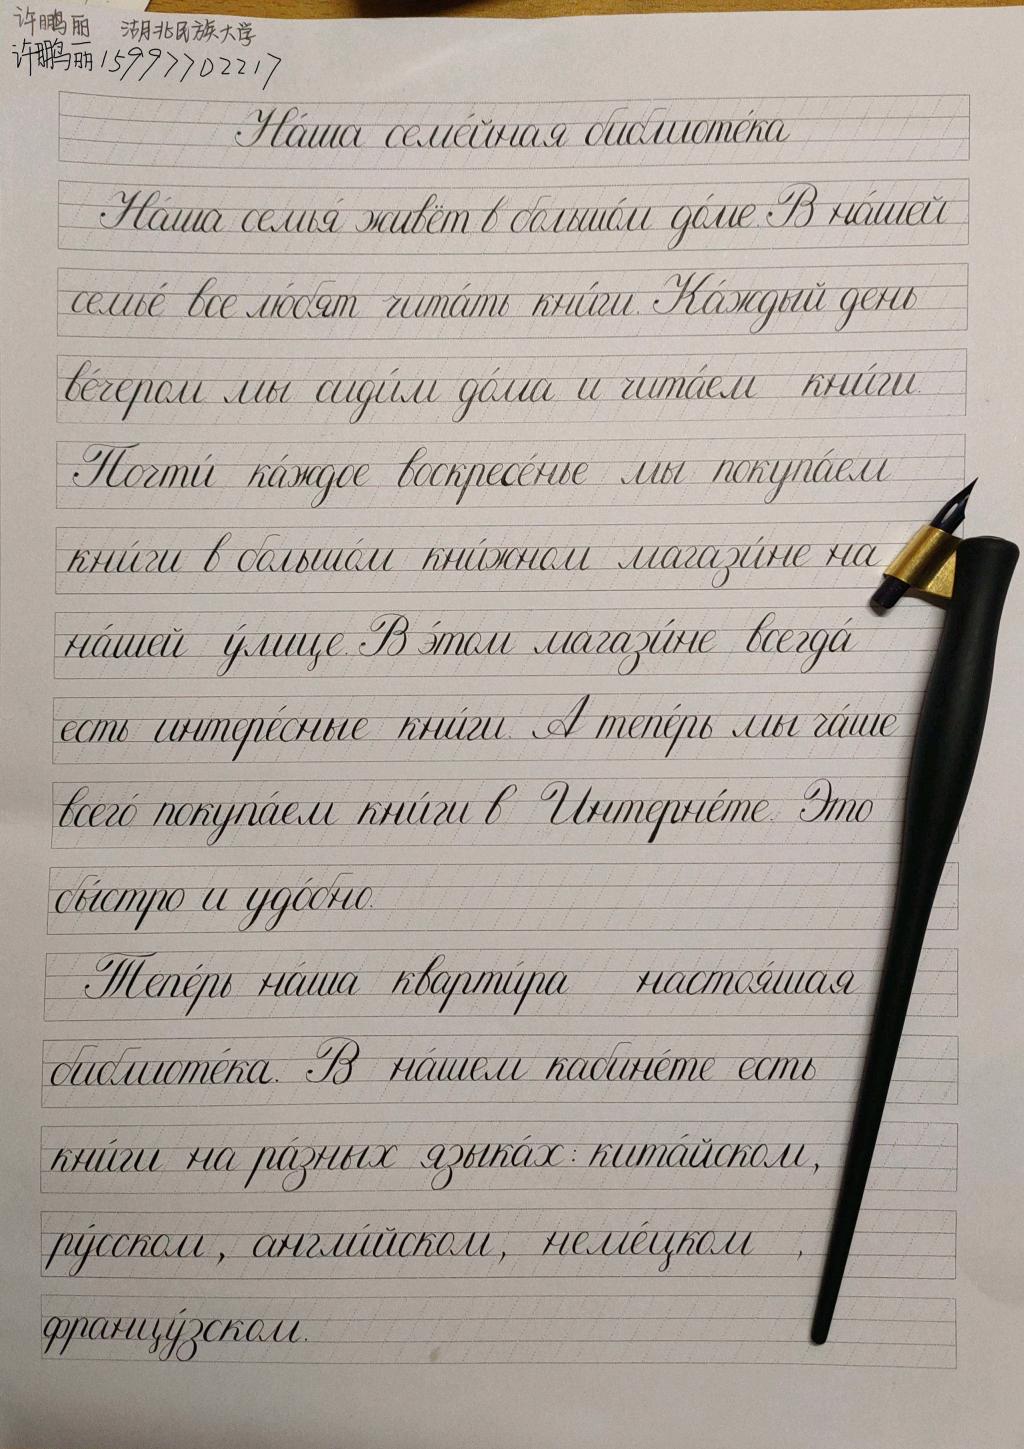 许鹏丽 湖北民族大学
许鹏丽15997702217
На́ша семе́йная библиоте́ка
На́ша семья́ живёт в большо́м до́ме. В на́шей
семье́ все лю́бят чита́ть кни́ги. Ка́ждый день
ве́чером мы сиди́м до́ма и чита́ем кни́ги.
Почти́ ка́ждое воскресе́нье мы покупа́ем
кни́ги в большо́м кни́жном магази́не на
на́шей у́лице. В э́том магази́не всегда́
есть интере́сные кни́ги. А тепе́рь мы ча́ше
всего́ покупа́ем кни́ги в Интерне́те. Это
бы́стро и удо́бно.
Тепе́рь на́ша кварти́ра настоя́шая
библиоте́ка. В на́шем кабине́те есть
кни́ги на ра́зных языка́х: кита́йском,
ру́сском, англи́йском, неме́цком ,
францу́зском.